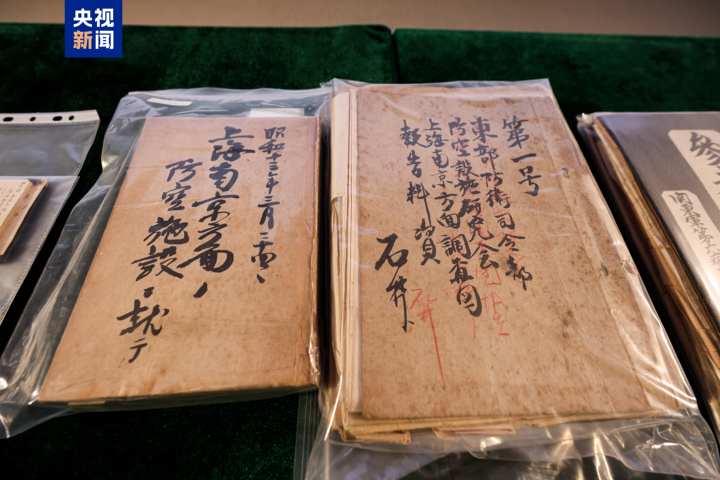 央视
新闻
昭和十三年三月二十四
上海南京方面ノ
防空施設ニ就テ
第一号
東部防衛司令部
防空設施研究会
上海南京方面調査
報告料資